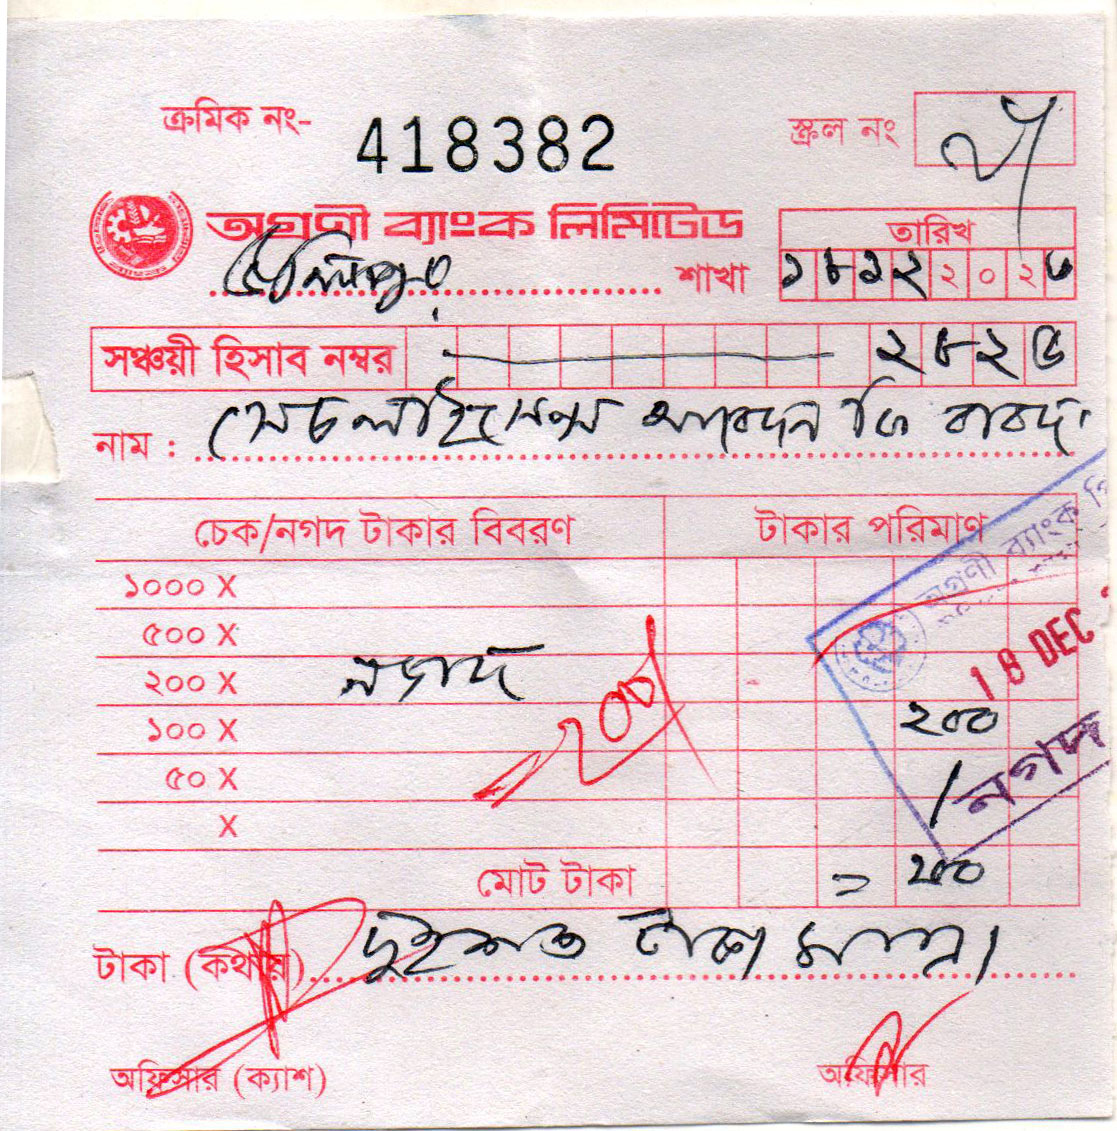 ক্রমিক নং- 418382
স্ক্রল নং
অগ্রণী ব্যাংক লিমিটেড
তারিখ
শাখা
১৮১২২০২৩
সঞ্চয়ী হিসাব নম্বর
নাম : সেচ লাইসেন্স আবেদন ফি বাবদ
চেক/নগদ টাকার বিবরণ
টাকার পরিমাণ
অগ্রণী ব্যাংক লি
১০০০ X
৫০০ X
18 DEC
২০০ X
নগদ
২০০
১০০ X
২০০
৫০ X
নগদ
X
মোট টাকা = ২০০
টাকা (কথায়) দুইশত টাকা মাত্র।
অফিসার (ক্যাশ)
অফিসার